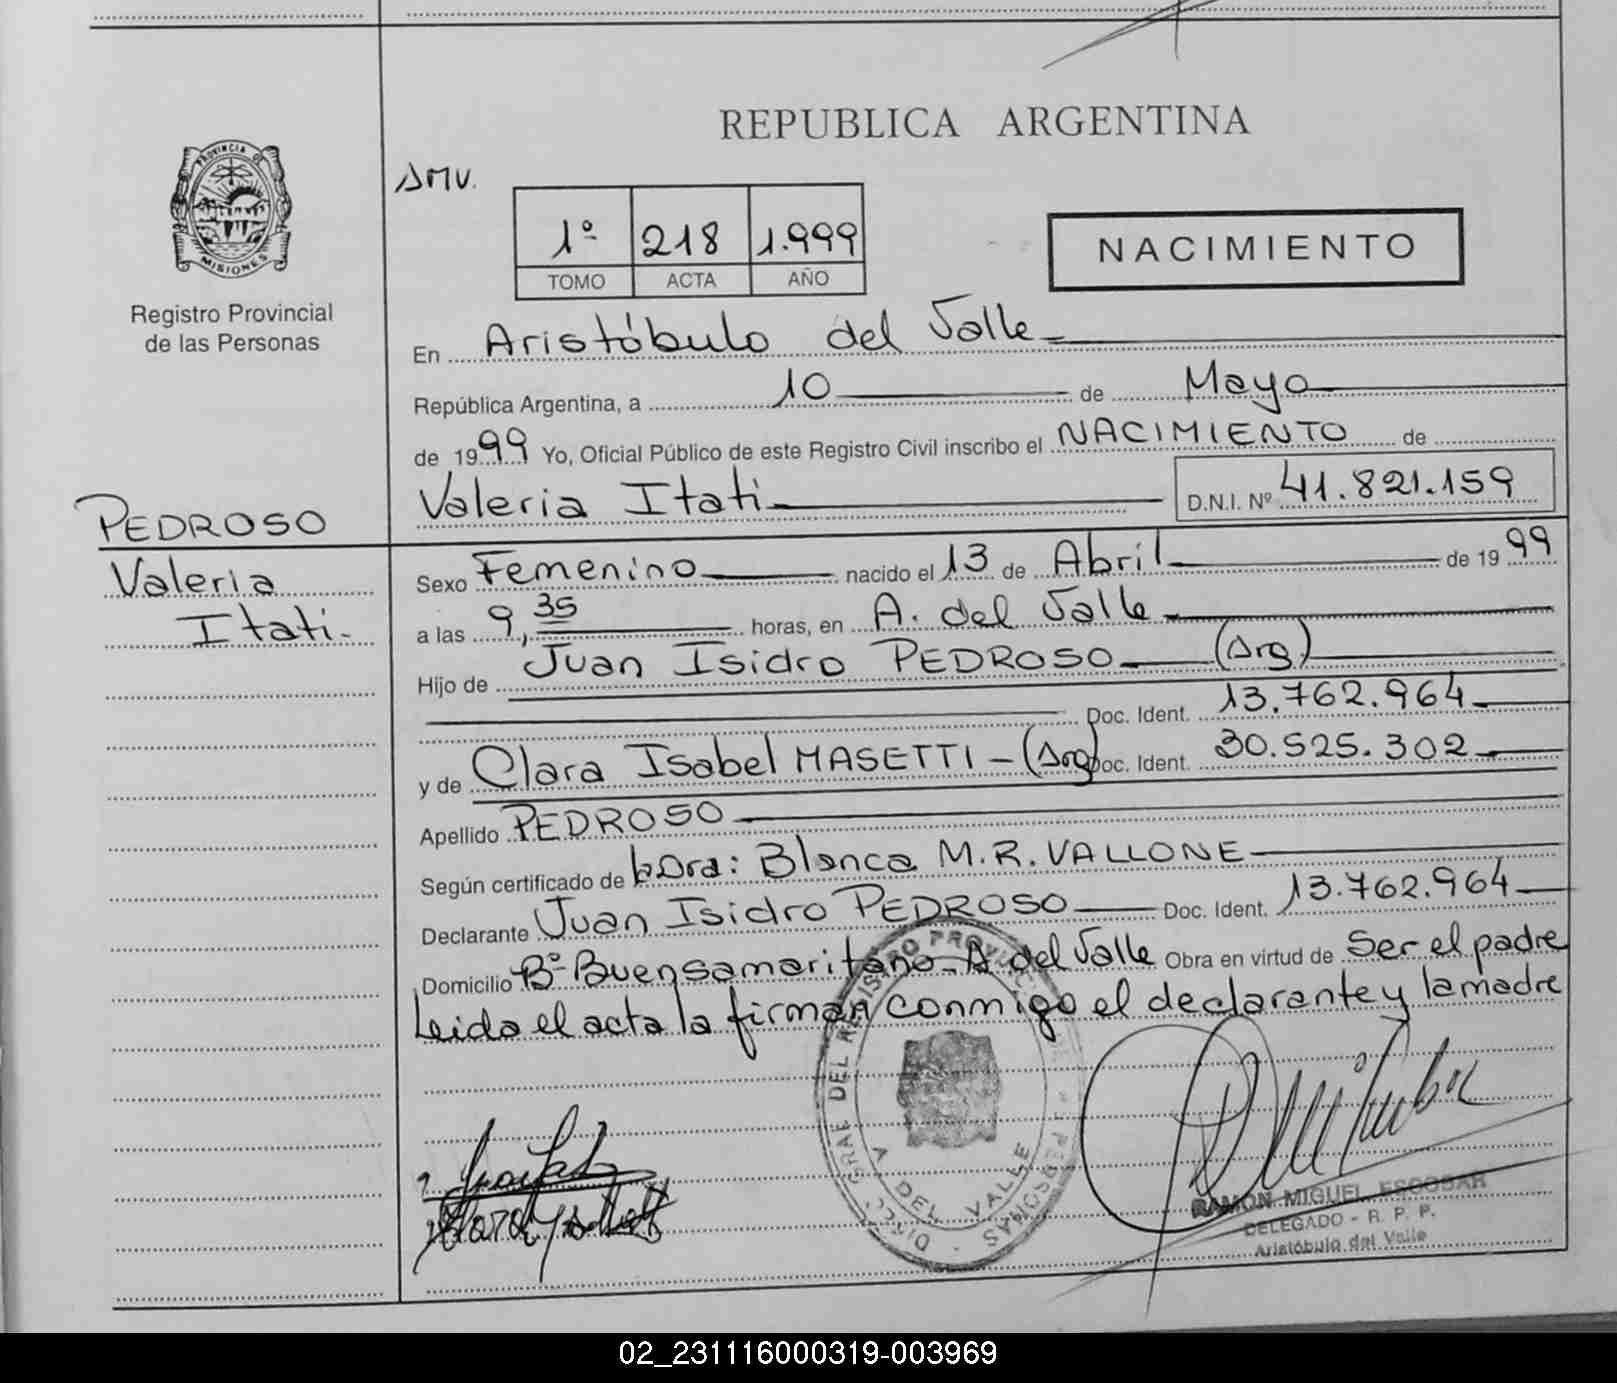 REPUBLICA ARGENTINA
PROVINCIA DE
MISIONES
Registro Provincial
de las Personas
SMV.
1º 218 1.999
TOMO ACTA AÑO
NACIMIENTO
En Aristóbulo del Valle
República Argentina, a 10 de Mayo
de 1999 Yo, Oficial Público de este Registro Civil inscribo el NACIMIENTO de
Valeria Itati D.N.I. Nº 41.821.159
PEDROSO
Valeria
Itati.
Sexo Femenino nacido el 13 de Abril de 1999
a las 9,35 horas, en A. del Valle
Hijo de Juan Isidro PEDROSO (Arg)
Doc. Ident. 13.762.964
y de Clara Isabel MASETTI - (Arg) Doc. Ident. 30.525.302
Apellido PEDROSO
Según certificado de la Dra: Blanca M.R. VALLONE
Declarante Juan Isidro PEDROSO Doc. Ident. 13.762.964
Domicilio Bº Buen samaritano - A del Valle Obra en virtud de Ser el padre
Leida el acta la firman conmigo el declarante y la madre
DEL REGISTRO PROVINCIAL DE PERSONAS
A DEL VALLE
RAMON MIGUEL ESCOBAR
DELEGADO - R. P. P.
Aristóbulo del Valle
02_231116000319-003969